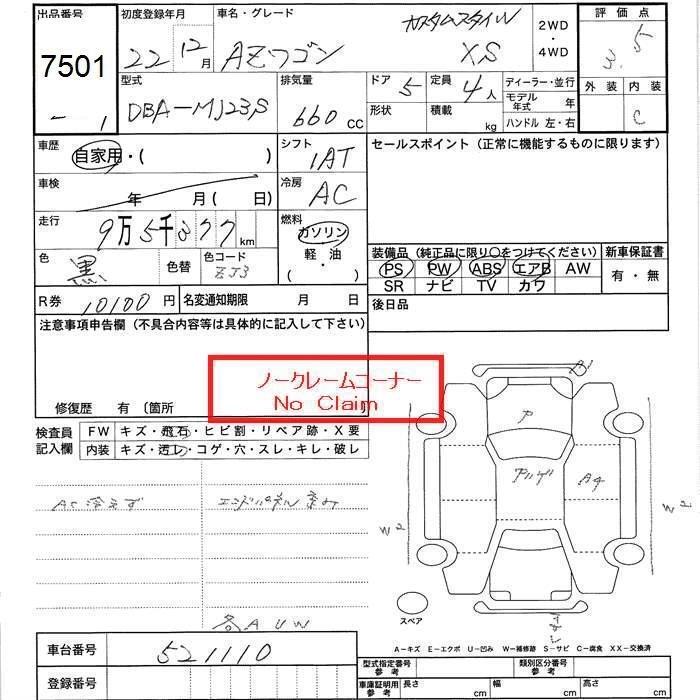 出品番号 初度登録年月 車名・グレード カスタムスタイル 2WD・4WD 評価点
7501 22 12月 AZワゴン XS 3.5
型式 排気量 ドア 定員 ディーラー・並行 外装 内装
DBA-MJ23S 660cc 5 4人 モデル年式 年 C
形状 積載 kg ハンドル 左・右
車歴 自家用・( ) シフト 1AT セールスポイント(正常に機能するものに限ります)
車検 年 月( 日) 冷房 AC
走行 9万5千377km 燃料 ガソリン・軽油 ( )
装備品(純正品に限り○をつけてください) 新車保証書
色 黒 色替 色コード ZJ3
PS PW ABS エアB AW 有・無
SR ナビ TV カワ
R券 10100円 名変通知期限 月 日 後日品
注意事項申告欄(不具合内容等は具体的に記入して下さい)
ノークレームコーナー
No Claim
修復歴 有〔箇所
検査員記入欄 FW キズ・飛石・ヒビ割・リペア跡・X要
内装 キズ・汚レ・コゲ・穴・スレ・キレ・破レ
AC冷えず
各AUW
A1
P
A4
W P
W P
スペア
A-キズ E-エクボ U-凹み W-補修跡 S-サビ C-腐食 XX-交換済
車台番号 521110 型式指定番号参考 類別区分番号参考
登録番号 車庫証明用参考 長さ cm 幅 cm 高さ cm